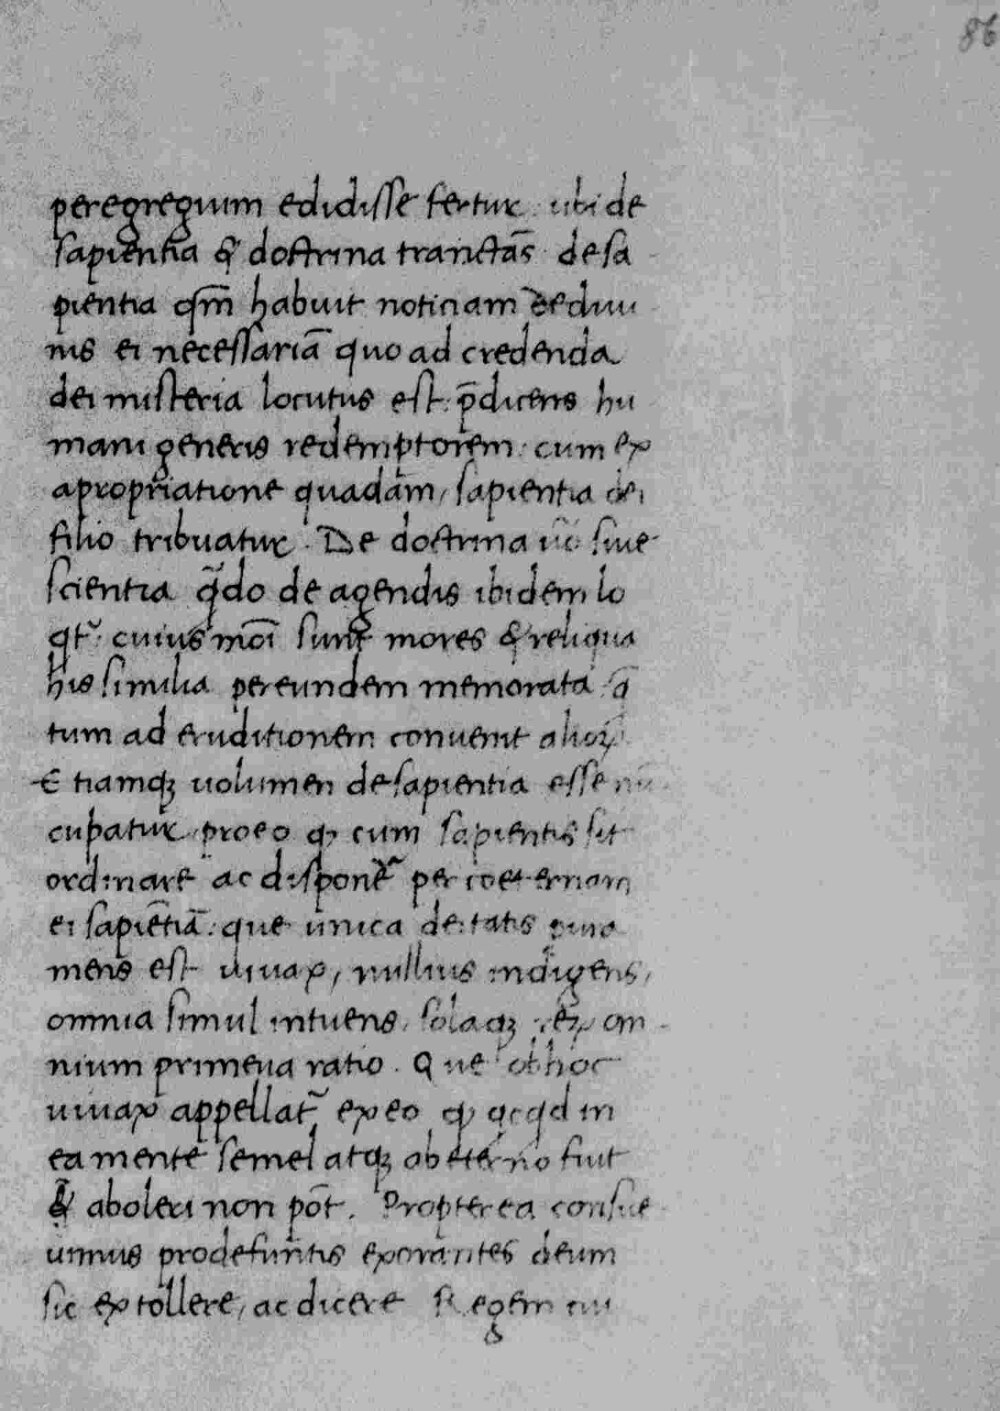 86
peregregium edidisse fertur ubi de
sapientia & doctrina tranctãs de sa
pientia qm̃ habuit noticiam de diui
nis ei necessariã quo ad credenda
dei misteria locutus est p̃dicens hu
mani generis redemptorem cum ex
apropriatione quadam, sapientia dei
filio tribuatur. De doctrina ũo siue
scientia q̃do de agendis ibidem lo
qt̃ cuiusmõi sunt mores & reliqua
his similia per eundem memorata q̃
tum ad eruditionem conuenit alioꝝ
Etiamqꝫ uolumen de sapientia esse nũ
cupatur pro eo ꝙ cum sapientis sit
ordinare ac disponẽ per coeternam
ei sapiẽtiã: que unica deitatis
mens est uiuax, nullius indigens,
omnia simul intuens, solaqꝫ om
nium primeua ratio. Que ob hoc
uiuax appellat̃ ex eo ꝙ qcqd in
ea mente semel atqꝫ ab eterno fuit
& aboleri non põt. Propterea consue
uimus pro defunctis exorantes deum
sic extollere, ac dicere Regem cui